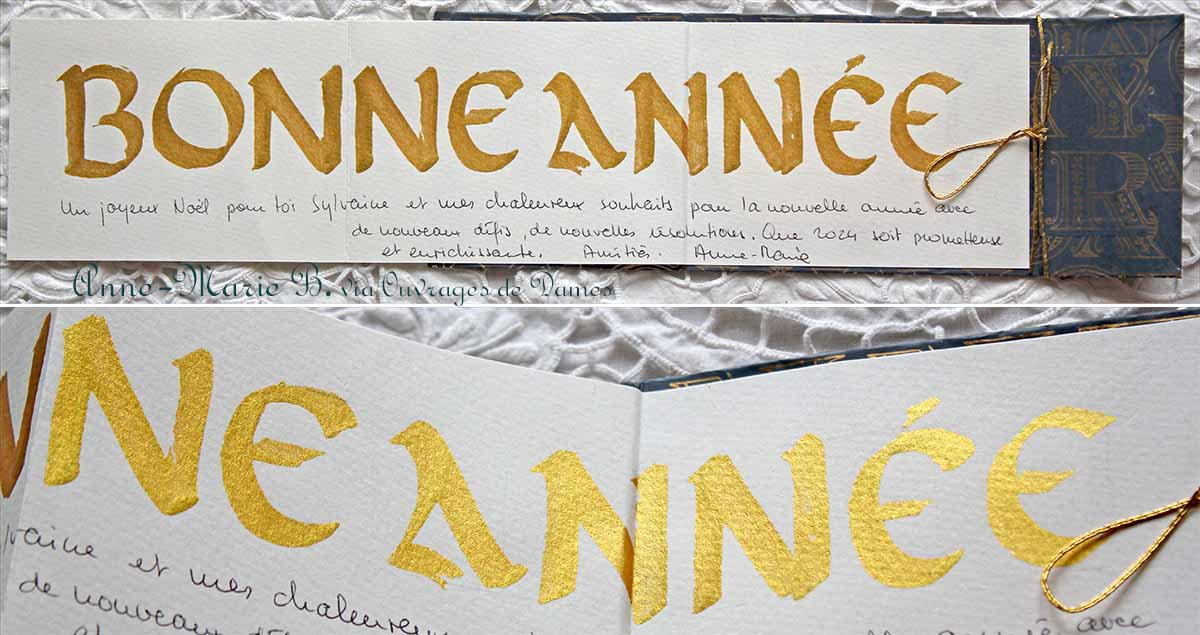 BONNE ANNÉE
Un joyeux Noël pour toi Sylvaine et mes chaleureux souhaits pour la nouvelle année avec
de nouveaux défis, de nouvelles résolutions. Que 2024 soit prometteuse
et enrichissante. Amitiés. Anne-Marie
Anne-Marie B. via Ouvrages de Dames
NE ANNÉE
vaine et mes chaleureux
de nouveaux défis
avec